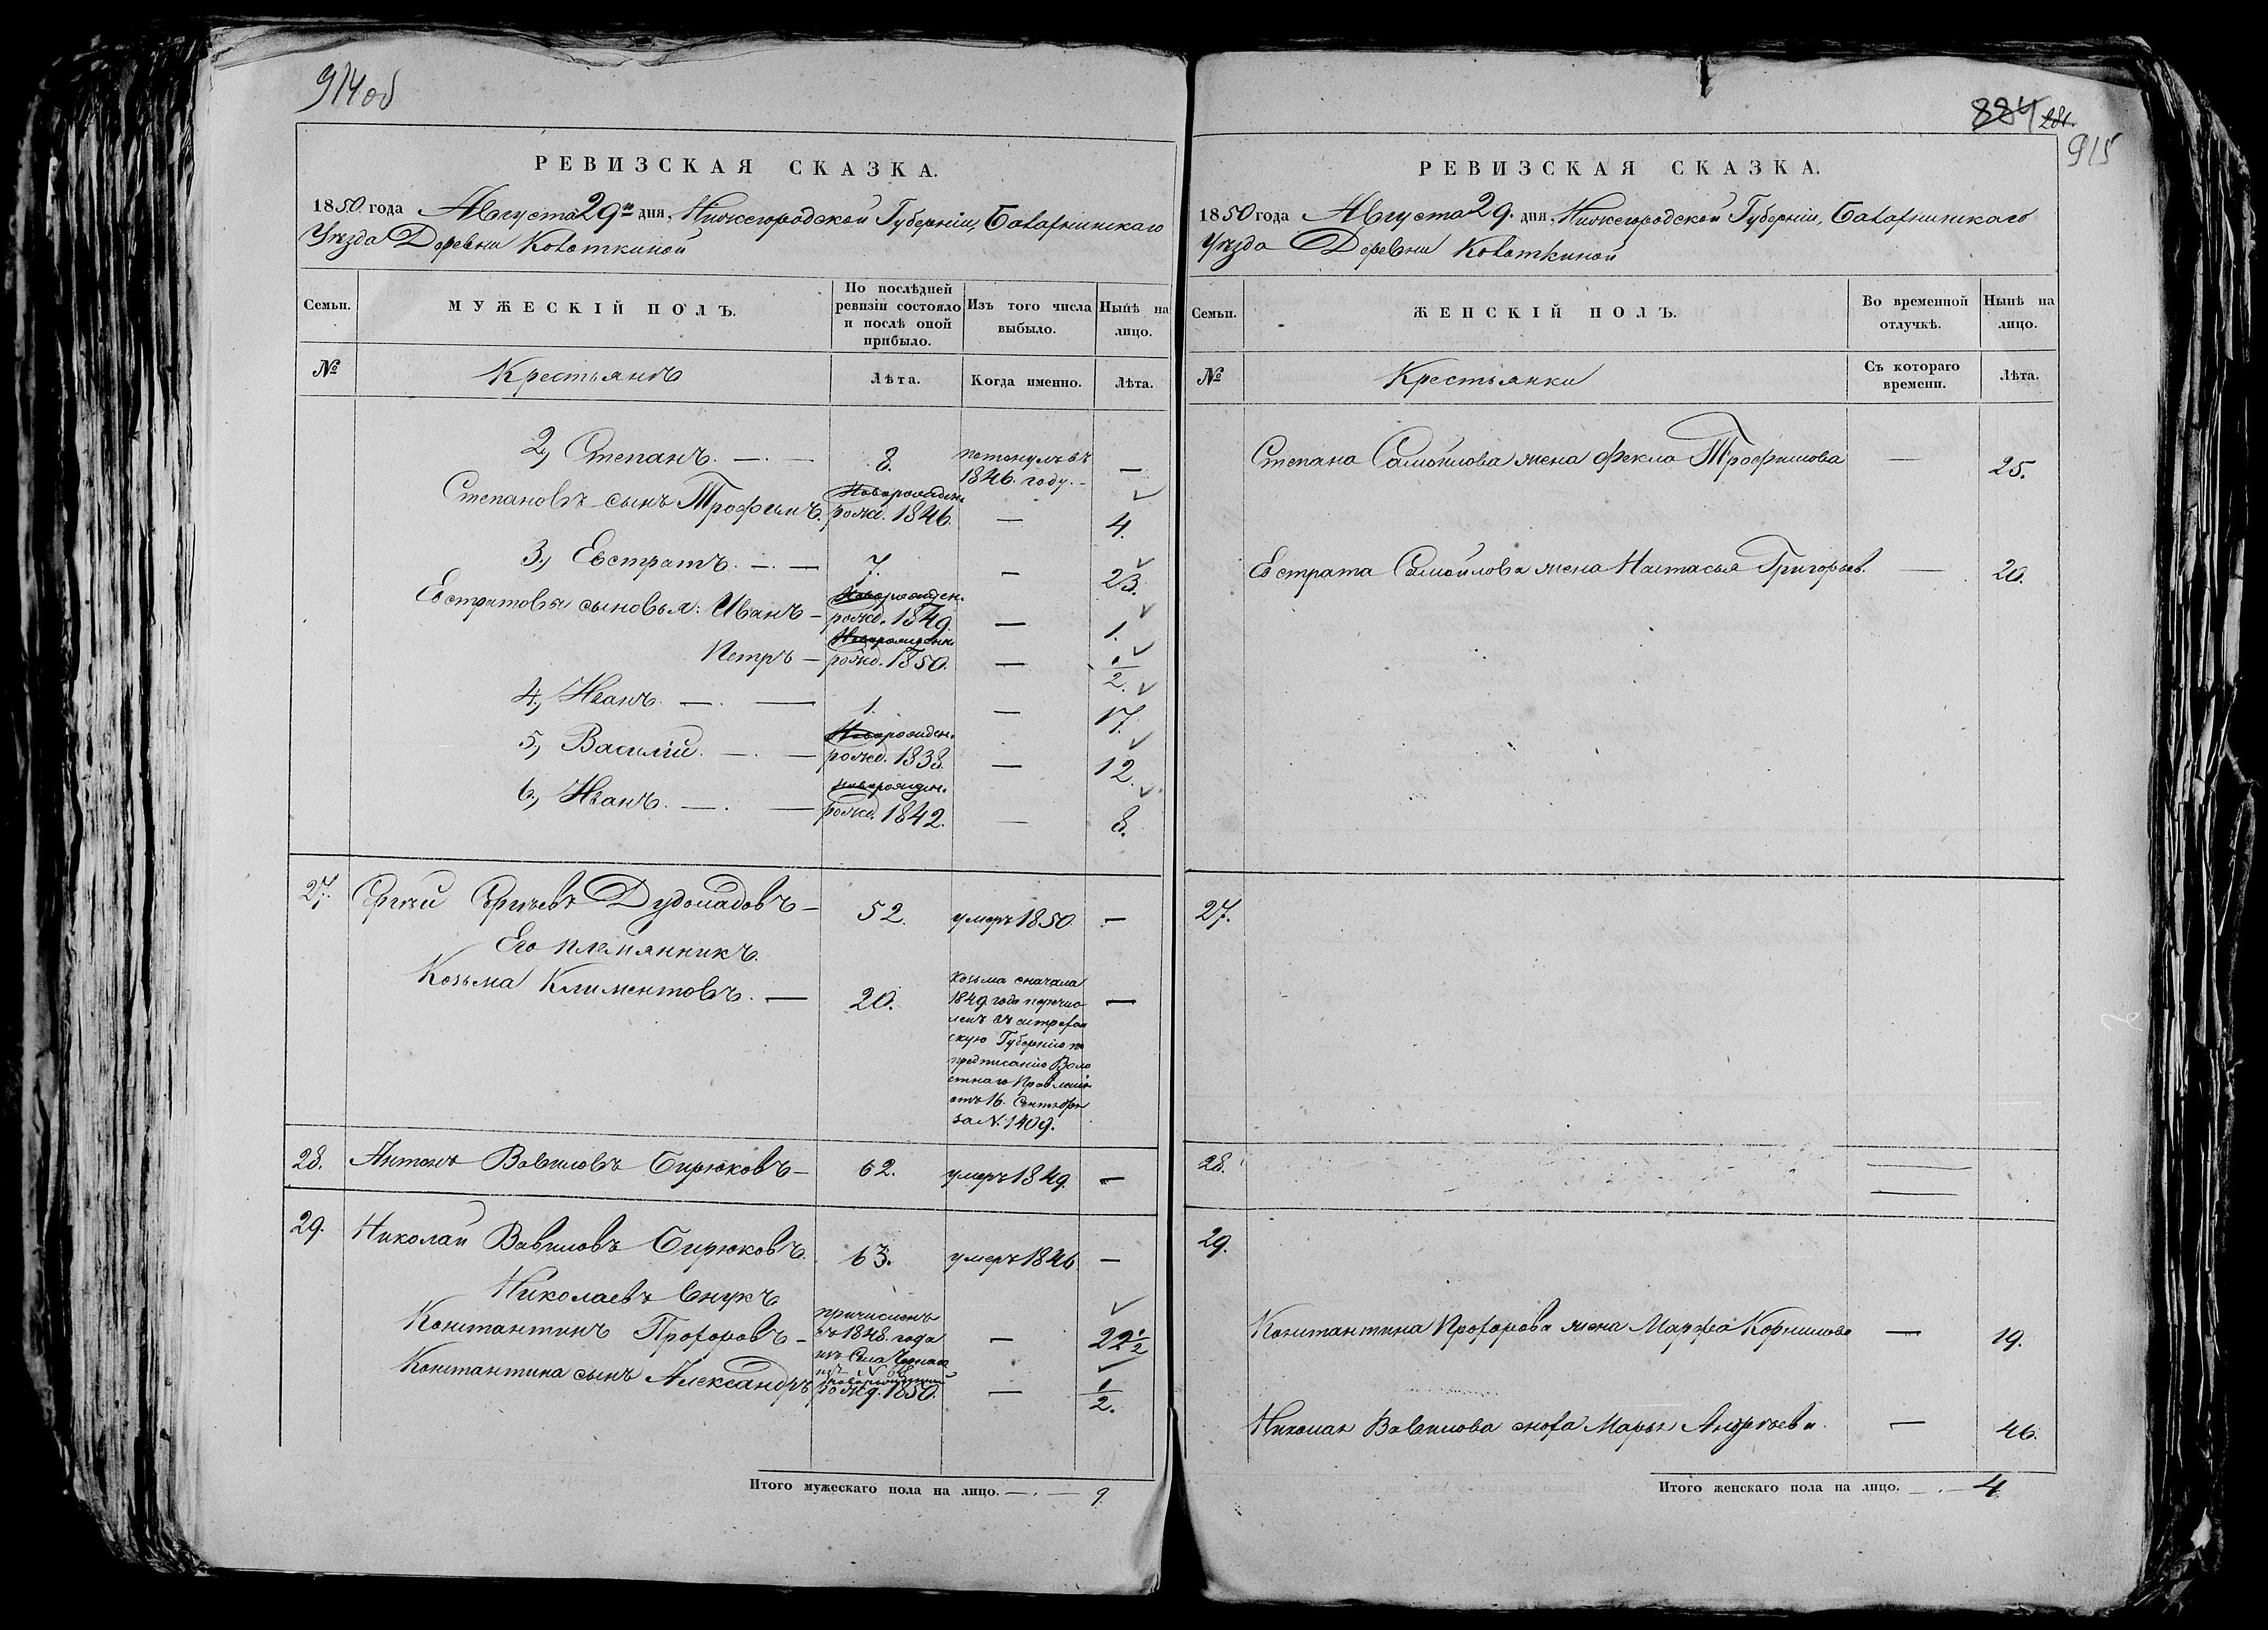 914 об
РЕВИЗСКАЯ СКАЗКА.
1850 года Августа 29го дня, Нижегородской Губерніи, Балахнинскаго
Уѣзда Деревни Колоткиной
Семьи.
МУЖЕСКІЙ ПОЛЪ.
По послѣдней ревизіи состояло и послѣ оной прибыло.
Изъ того числа выбыло.
Нынѣ на лицо.
№
Крестьянъ
Лѣта.
Когда именно.
Лѣта.
2, Степанъ. — — 8. потонулъ въ 1846. году. —
Степановъ сынъ Трофимъ. Новорожден. рожд. 1846. — 4.
3, Евстратъ. — — 7. — 23.
Евстратовы сыновья: Иванъ — Новорожден. рожд. 1849. — 1.
Петръ — Новорожден рожд. 1850. — 1/2.
4, Иванъ. — — 1. — 17.
5, Василій. — — Новорожден. рожд. 1838. — 12.
6, Иванъ. — — Новорожден. рожд. 1842. — 8.
27. Сергѣй Сергѣевъ Дудоладовъ — 52. умеръ 1850. —
Его племянникъ.
Козьма Климентовъ. — 20. —
Козьма сначала
1849 года перечис
ленъ въ астрахан
скую Губернію по
предписанію Воло
стнаго Правленія
отъ 16. Сентября
за N. 1409.
28. Антонъ Вавиловъ Бирюковъ — 62. умеръ 1849. —
29. Николай Вавиловъ Бирюковъ. 63. умеръ 1846 —
Николаевъ внукъ
Константинъ Прохоровъ — причисленъ въ 1848. года изъ Села — 22 1/2
Константина сынъ Александръ рожд. 1850. — 1/2.
Итого мужескаго пола на лицо. — 9.
884
915
РЕВИЗСКАЯ СКАЗКА.
1850 года Августа 29. дня, Нижегородской Губерніи, Балахнинскаго
Уѣзда Деревни Колоткиной
Семьи.
ЖЕНСКІЙ ПОЛЪ.
Во временной отлучкѣ.
Нынѣ на лицо.
№
Крестьянки
Съ котораго времени.
Лѣта.
Степана Самойлова жена Фекла Трофимова — 25.
Евстрата Самойлова жена Настасья Григорьев. — 20.
27.
28.
29.
Константина Прохорова жена Марфа Корнилова — 19.
Николая Вавилова сноха Марья Андреева — 46.
Итого женскаго пола на лицо. — 4